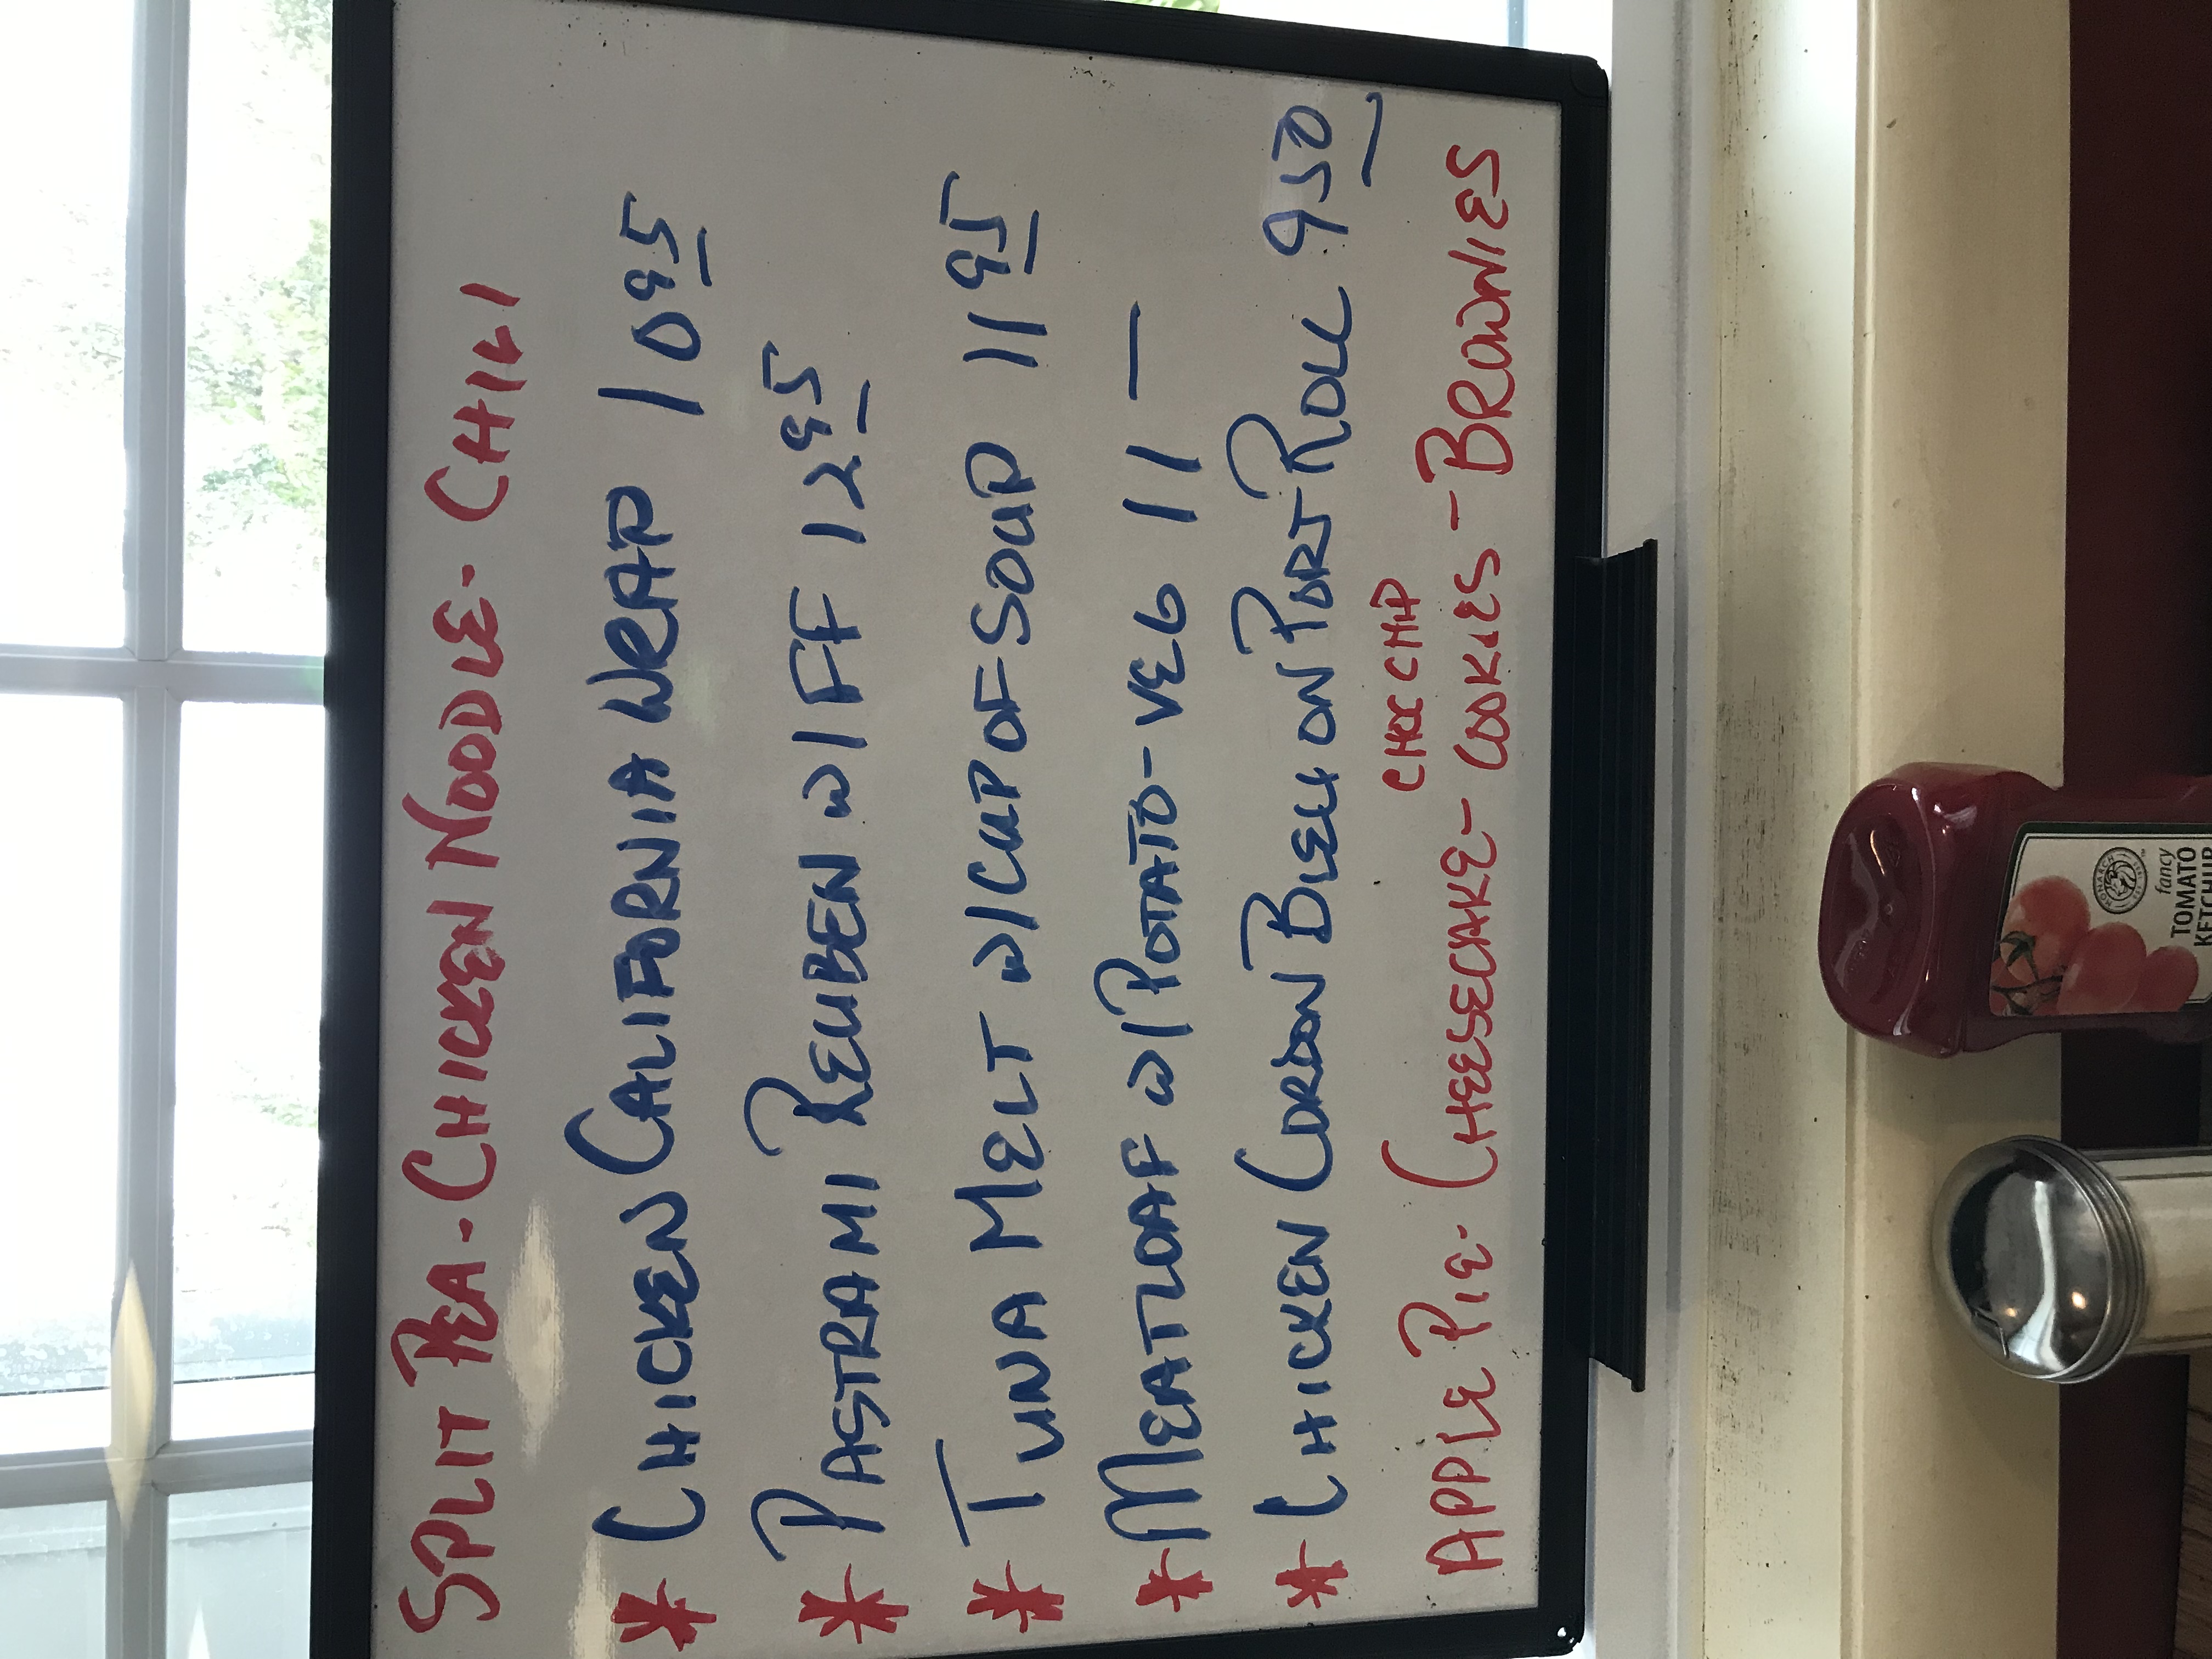 SPLIT PEA - CHICKEN NOODLE - CHILI
* CHICKEN CALIFORNIA WRAP 10 95
* PASTRAMI REUBEN W/FF 12 95
* TUNA MELT W/CUP OF SOUP 11 95
* MEATLOAF W/POTATO-VEG 11 —
* CHICKEN CORDON BLEU ON PORT ROLL 9 50
CHOC CHIP
APPLE PIE - CHEESECAKE - COOKIES - BROWNIES
MONARCH
fancy
TOMATO
KETCHUP